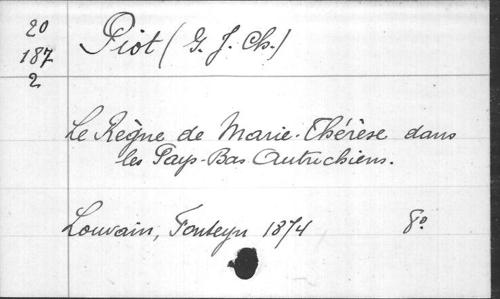 20
187
2
Piot (G. J. Ch.)
Le Règne de Marie-Thérèse dans
les Pays-Bas Autrichiens.
Louvain, Fonteyn 1874 8º